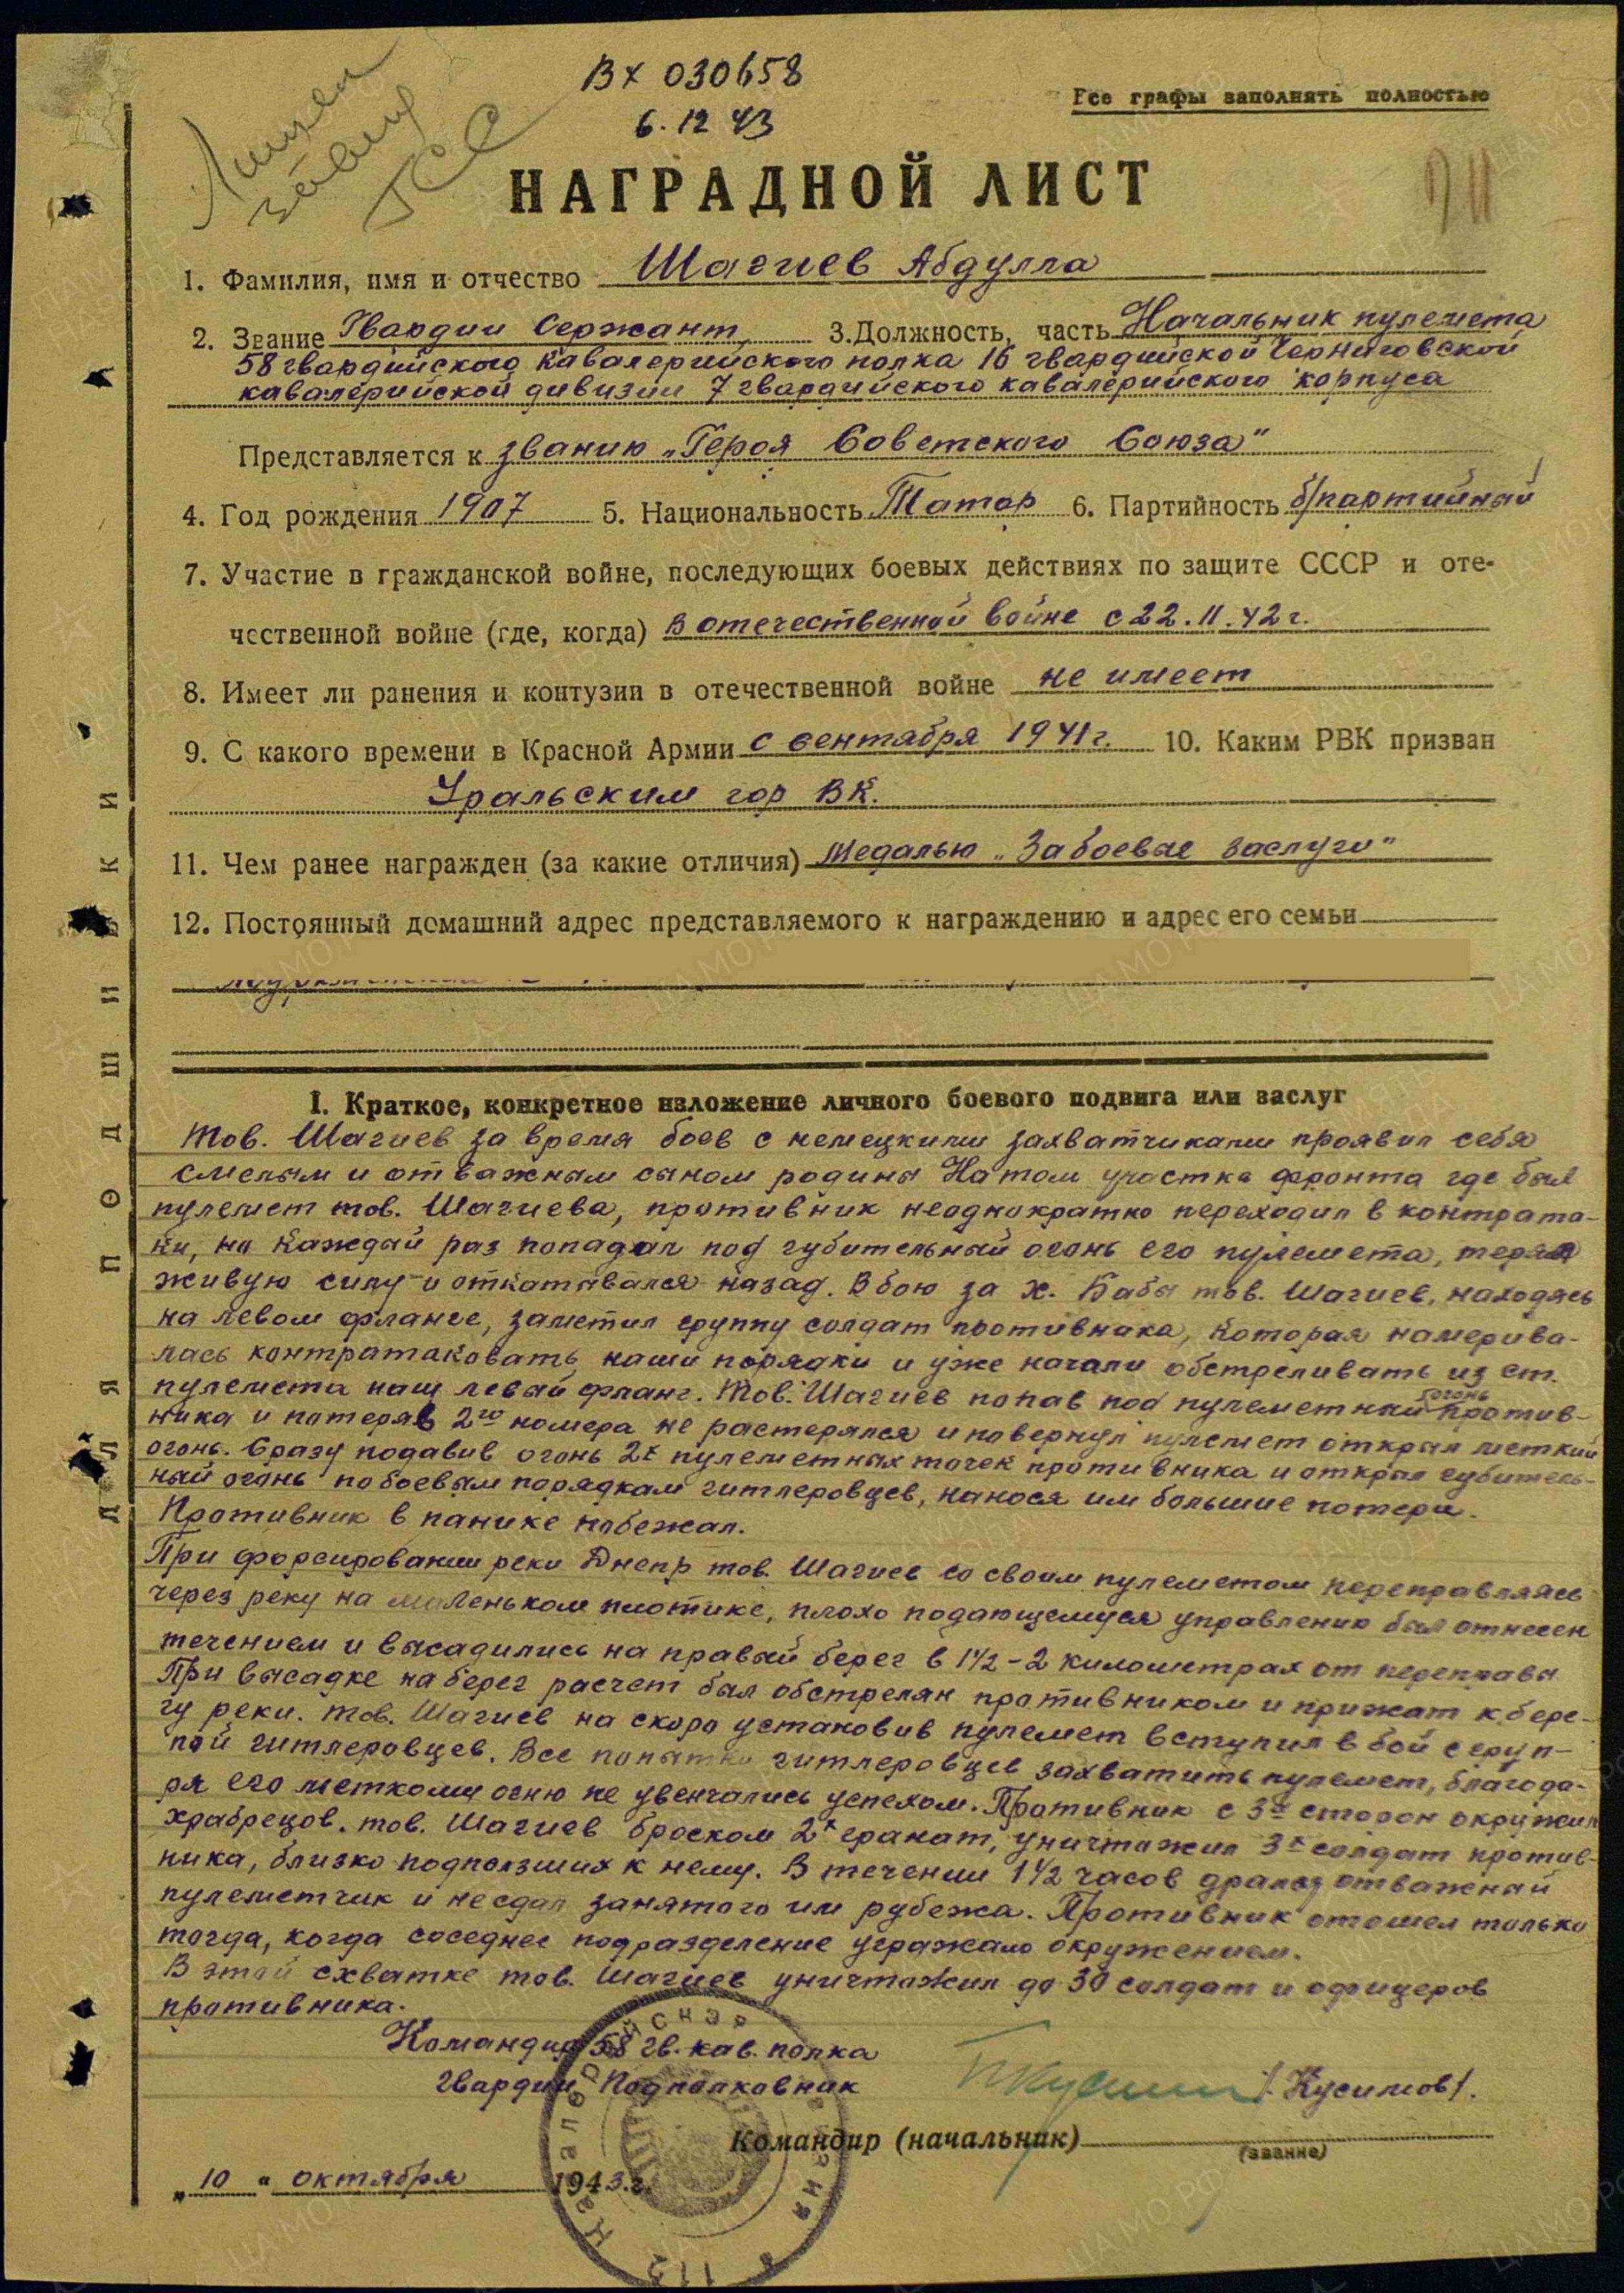 Вх 030658
6.12 43
Все графы заполнять полностью
Лишен
звания
ГСС
НАГРАДНОЙ ЛИСТ
1. Фамилия, имя и отчество Шагиев Абдулла
2. Звание Гвардии Сержант 3. Должность, часть Начальник пулемета
58 гвардийского кавалерийского полка 16 гвардийской Черниговской
кавалерийской дивизии 7 гвардийского кавалерийского корпуса
Представляется к званию „Героя Советского Союза"
4. Год рождения 1907 5. Национальность Татар 6. Партийность б/партийный
7. Участие в гражданской войне, последующих боевых действиях по защите СССР и оте-
чественной войне (где, когда) В отечественной войне с 22.11.42 г.
8. Имеет ли ранения и контузии в отечественной войне не имеет
9. С какого времени в Красной Армии с сентября 1941 г. 10. Каким РВК призван
Уральским гор ВК.
11. Чем ранее награжден (за какие отличия) Медалью „За боевые заслуги"
12. Постоянный домашний адрес представляемого к награждению и адрес его семьи
ДЛЯ ПОДШИВКИ
I. Краткое, конкретное изложение личного боевого подвига или заслуг
Тов. Шагиев за время боев с немецкими захватчиками проявил себя
смелым и отважным сыном родины На том участке фронта где был
пулемет тов. Шагиева, противник неоднократно переходил в контрата-
ки, но каждый раз попадал под губительный огонь его пулемета, теряя
живую силу и откатывался назад. В бою за х. Бабы тов. Шагиев, находясь
на левом фланге, заметил группу солдат противника, которая намерива-
лась контратаковать наши порядки и уже начали обстреливать из ст.
пулемета наш левый фланг. Тов. Шагиев попав под пулеметный огонь против-
ника и потеряв 2го номера не растерялся и повернул пулемет открыл меткий
огонь. Сразу подавив огонь 2х пулеметных точек противника и открыл губитель-
ный огонь по боевым порядкам гитлеровцев, нанося им большие потери.
Противник в панике побежал.
При форсировании реки Днепр тов. Шагиев со своим пулеметом переправляясь
через реку на маленьком плотике, плохо подающемуся управлению был отнесен
течением и высадились на правый берег в 1½-2 километрах от переправы
При высадке на берег расчет был обстрелян противником и прижат к бере-
гу реки. Тов. Шагиев на скоро установив пулемет вступил в бой с груп-
пой гитлеровцев. Все попытки гитлеровцев захватить пулемет, благода-
ря его меткому огню не увенчались успехом. Противник с 3х сторон окружил
храбрецов. тов. Шагиев броском 2х гранат, уничтожил 3х солдат против-
ника, близко подползших к нему. В течении 1½ часов дрался отважный
пулеметчик и не сдал занятого им рубежа. Противник отошел только
тогда, когда соседнее подразделение угражало окружением.
В этой схватке тов. Шагиев уничтожил до 30 солдат и офицеров
противника.
Командир 58 гв. кав. полка
гвардии Подполковник /Кусимов/.
Командир (начальник)
(звание)
„10" октября 1943 г.